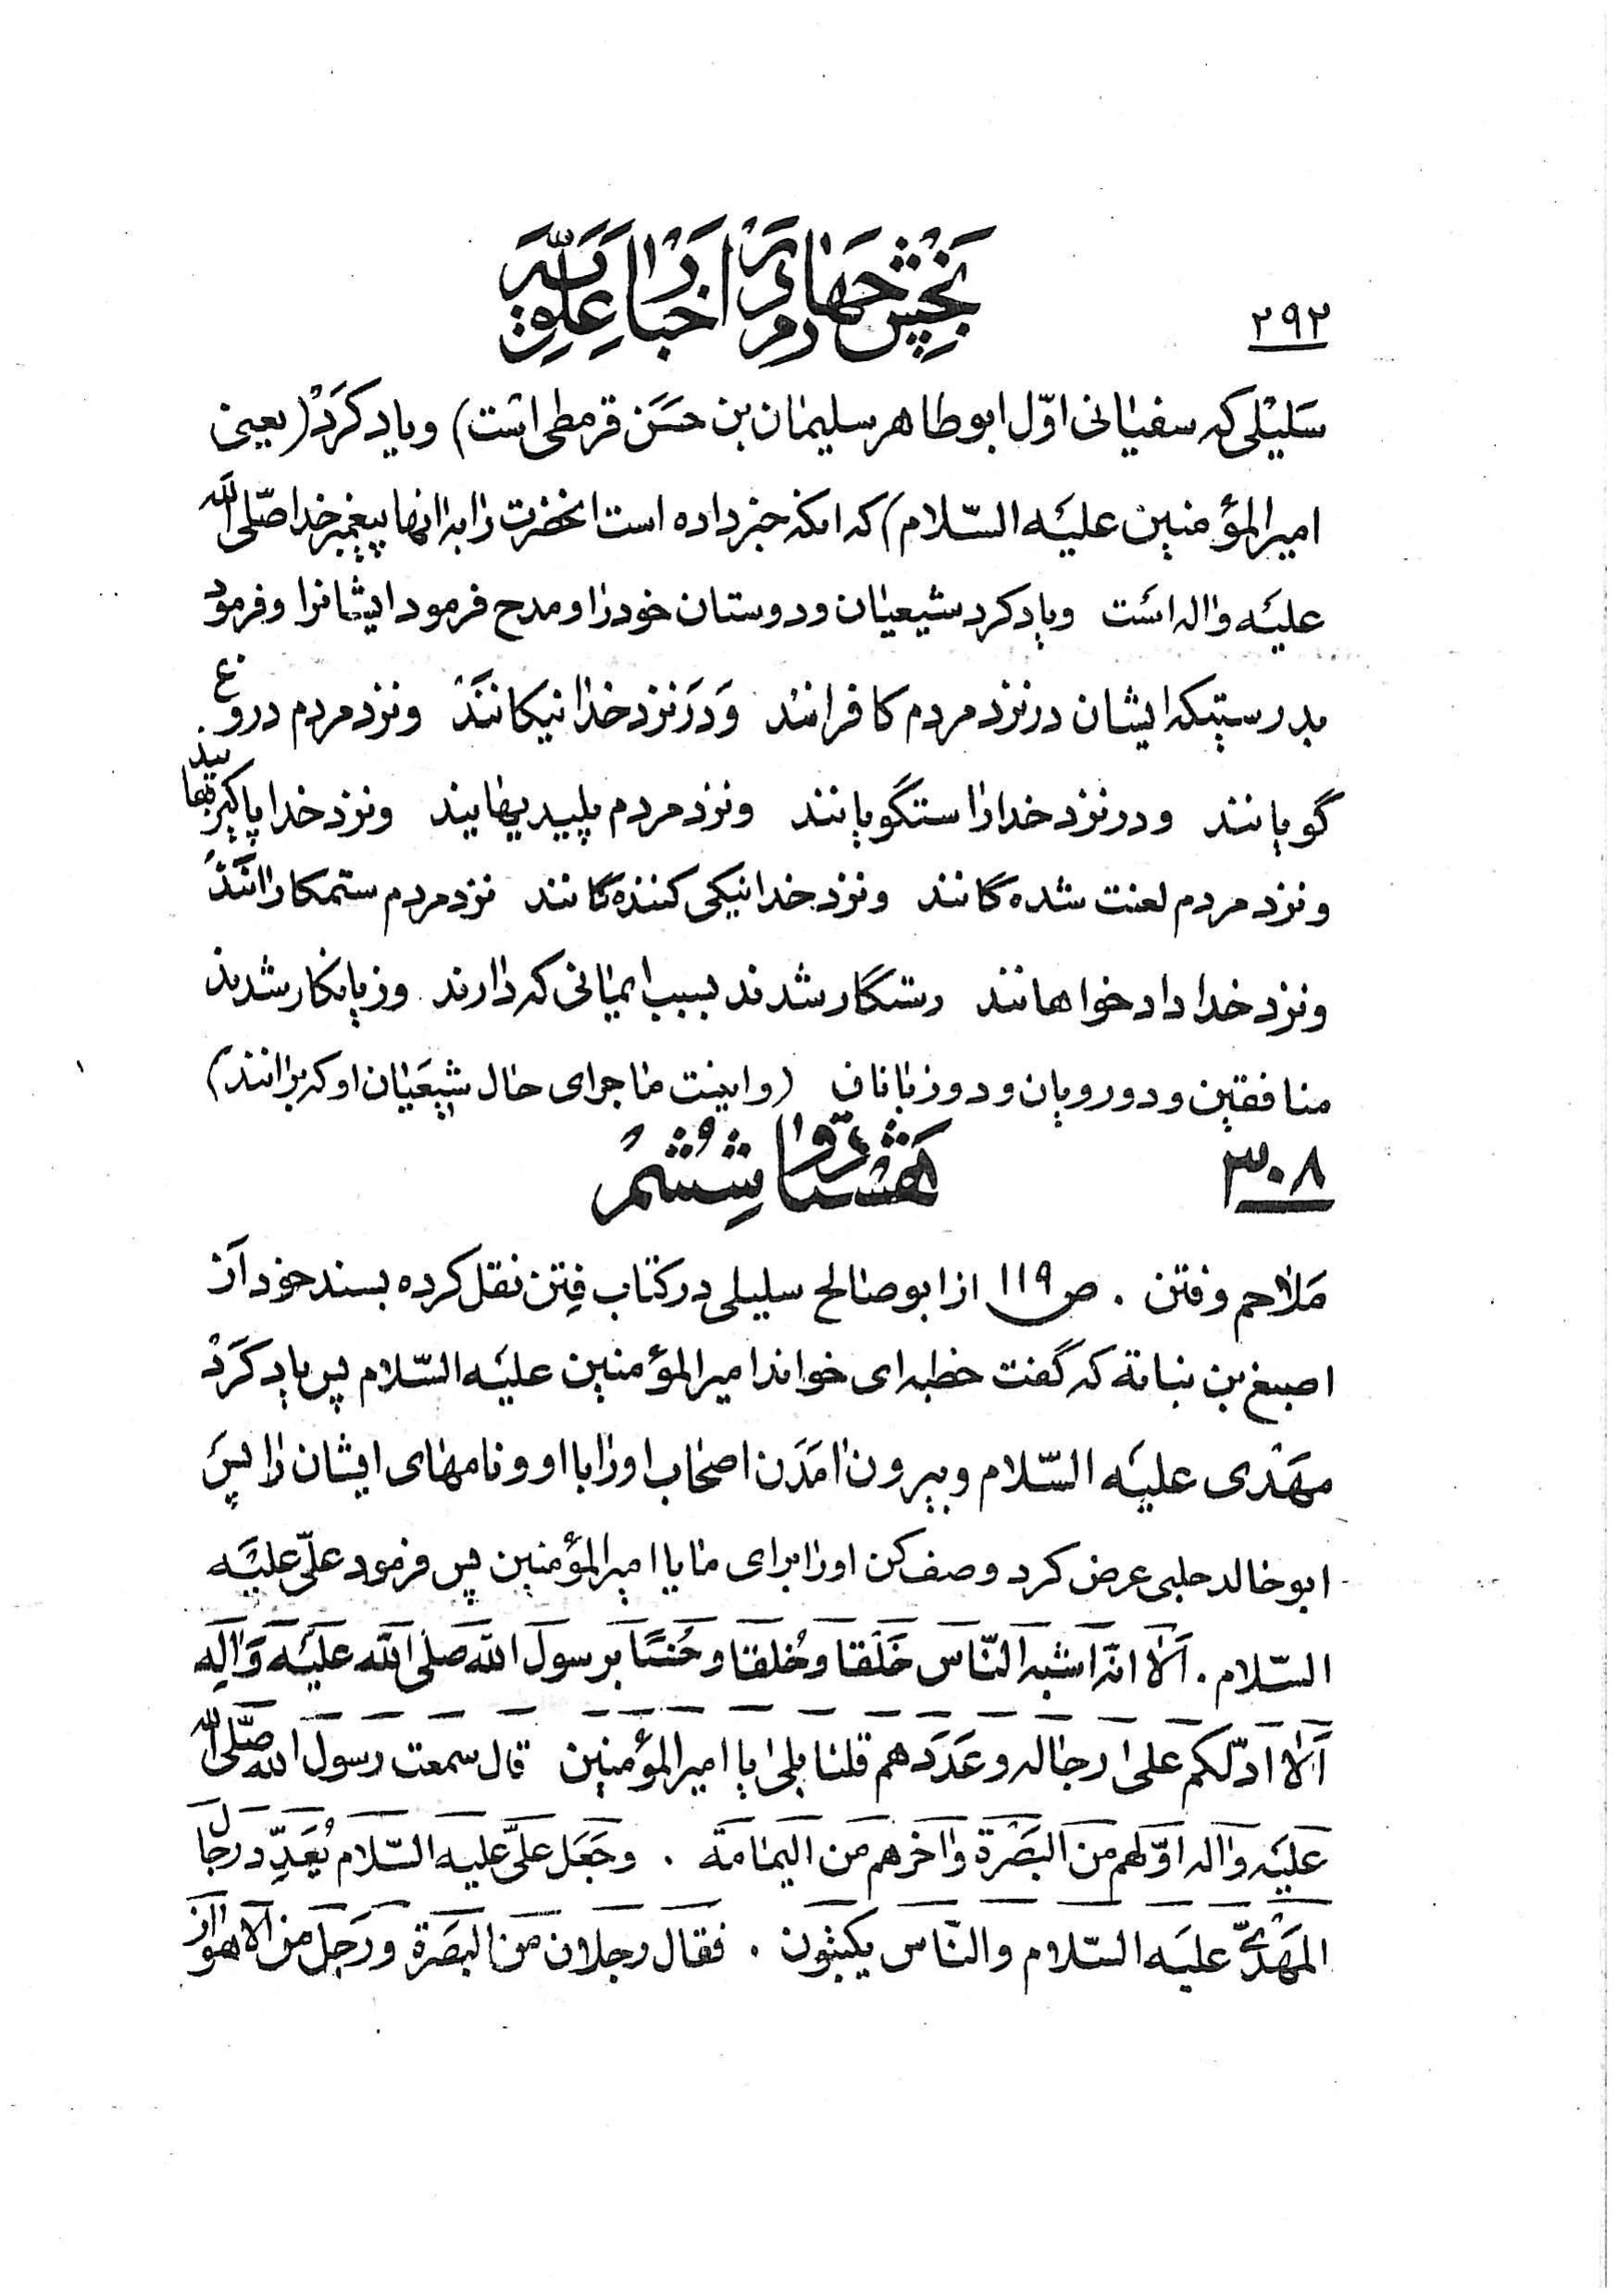 ۲۹۲
بخش چهارم در اخبار علویه
سلیلی که سفیانی اوّل ابوطاهر سلیمان بن حسن قرمطی است) و یاد کرد (یعنی
امیرالمؤمنین علیه السّلام) که آنکه خبر داده است انحضرت را به انها پیغمبر خدا صلّی الله
علیه واله است و یاد کرد شیعیان و دوستان خود را و مدح فرمود ایشانرا و فرمود
بدرستیکه ایشان در نزد مردم کافرانند و در نزد خدا نیکانند و نزد مردم دروغ
گویانند و در نزد خدا راستگویانند و نزد مردم پلیدیهایند و نزد خدا پاکیزیهایند
و نزد مردم لعنت شده گانند و نزد خدا نیکی کننده گانند نزد مردم ستمکارانند
و نزد خدا دادخواهانند رستگار شدند بسبب ایمانی که دارند و زیانکار شدند
منافقین و دورویان و دوزبانان (و اینست ماجرای حال شیعیان او که برانند)
۳۰۸ گفتار شصت و ششم
ملاحم و فتن . ص ۱۱۹ از ابوصالح سلیلی در کتاب فِتن نقل کرده بسند خود از
اصبغ بن نباته که گفت خطبه ای خواند امیرالمؤمنین علیه السّلام پس یاد کرد
مهدی علیه السّلام و بیرون امدن اصحاب او را با او و نامهای ایشان را پس
ابوخالد حلبی عرض کرد وصف کن او را برای ما یا امیرالمؤمنین پس فرمود علیّ علیه
السّلام . اَلا انّه اشبه النّاس خَلقا و خُلقا و حُسنًا برسول الله صلی الله علیه وَالِه
اَلا ادّلکم علی رجاله و عَدَدهم قلنا بلی یا امیرالمؤمنین قال سمعت رسول الله صلّی الله
علیه واله اوّلهم من البَصرة واخرهم من الیمامة . وجَعَل علیّ علیه السّلام یُعَدِّد رجال
المَهدیّ علیه السّلام والنّاس یکتبون . فقال رجلان من البَصرة ورَجل من الاهواز